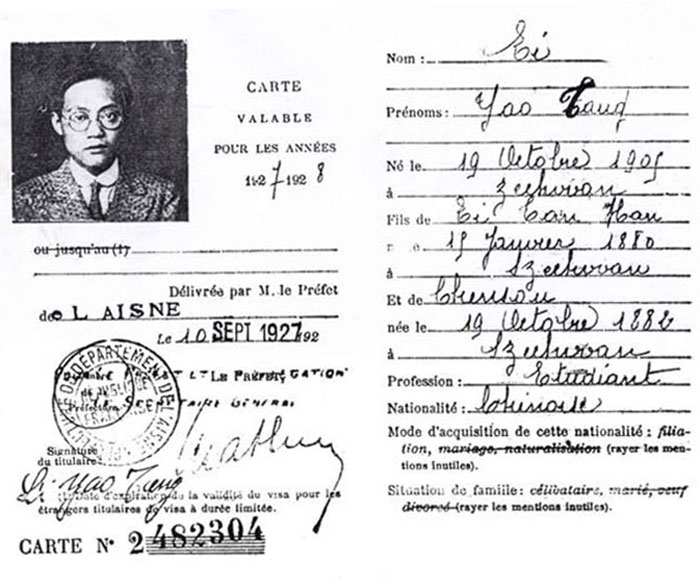 CARTE
VALABLE
POUR LES ANNÉES
1927 1928
ou jusqu'au (1)
Délivrée par M. le Préfet
de L AISNE
Le 10 SEPT 1927 192
LE PRÉFET,
Signature
du titulaire
Li Yao Tang
(1) Date d'expiration de la validité du visa pour les
étrangers titulaires de visa à durée limitée.
CARTE N° 2 482304
DÉPARTEMENT DE L'AISNE
Nom : Li
Prénoms : Yao Tang
Né le 19 Octobre 1905
à Szechwan
Fils de Li
15 Janvier 1880
à Szechwan
Et de
née le 19 Octobre 1882
à Szechwan
Profession : Etudiant
Nationalité : Chinoise
Mode d'acquisition de cette nationalité : filia-
tion, mariage, naturalisation (rayer les men-
tions inutiles).
Situation de famille : célibataire, marié, veuf
divorcé (rayer les mentions inutiles).